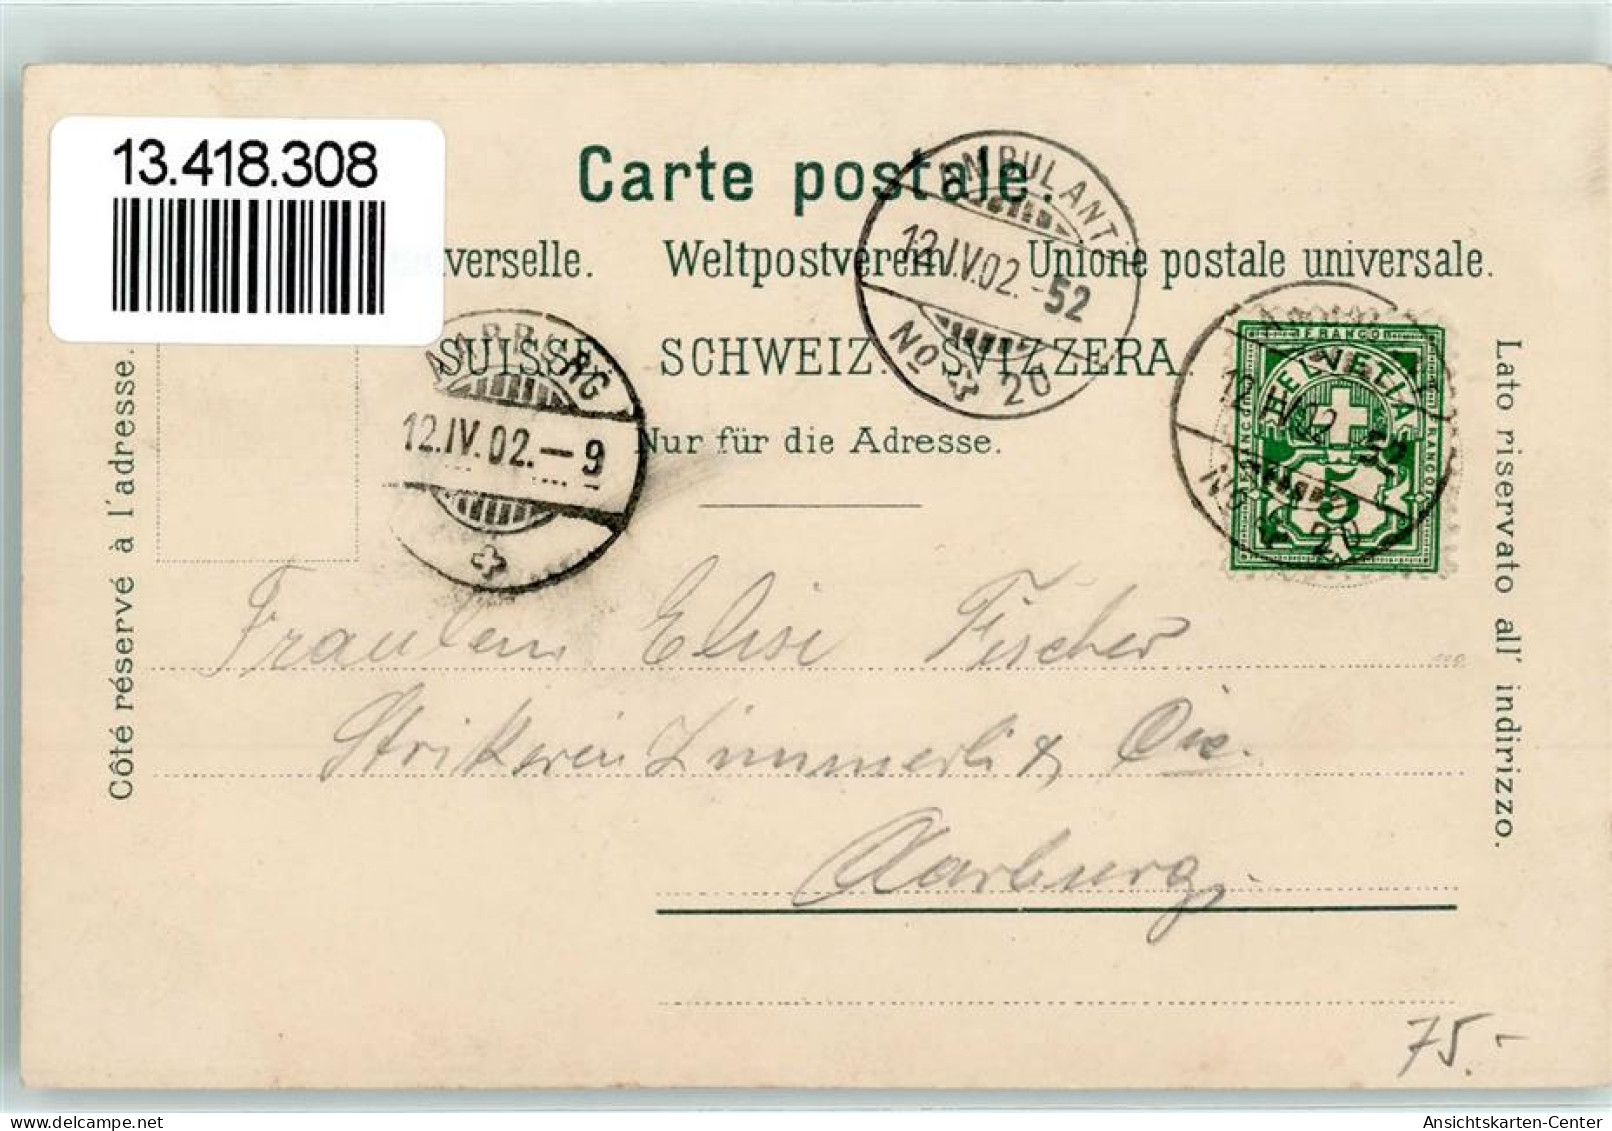 13.418.308
Carte postale.
verselle. Weltpostverein Unione postale universale.
SUISSE SCHWEIZ. SVIZZERA.
Nur für die Adresse.
AMBULANT
12.IV.02.-52
No 20
AARBURG
12.IV.02.-9
FRANCO
HELVETIA
FRANCO
FRANCO
5
12.IV.02 52
No 20
Côté réservé à l'adresse.
Lato riservato all' indirizzo.
Fraulein Elisi Fischer
Strikerein Zimmerli & Cie.
Aarburg,
75.-
Ansichtskarten-Center